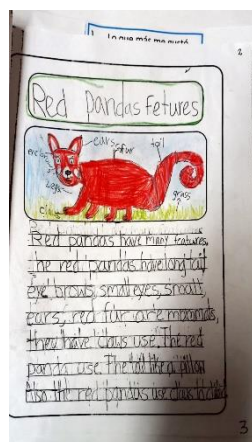 1. Lo que más me gustó
2
Red pandas fetures
ears
fur
tail
legs
claws
grass
Red pandas have many features,
The red pandas have long tail
eye brows, small eyes, small
ears, red fur are mammals,
they have claws use. The red
panda use. The tail like a pillow
Also the red pandas use claws to
3